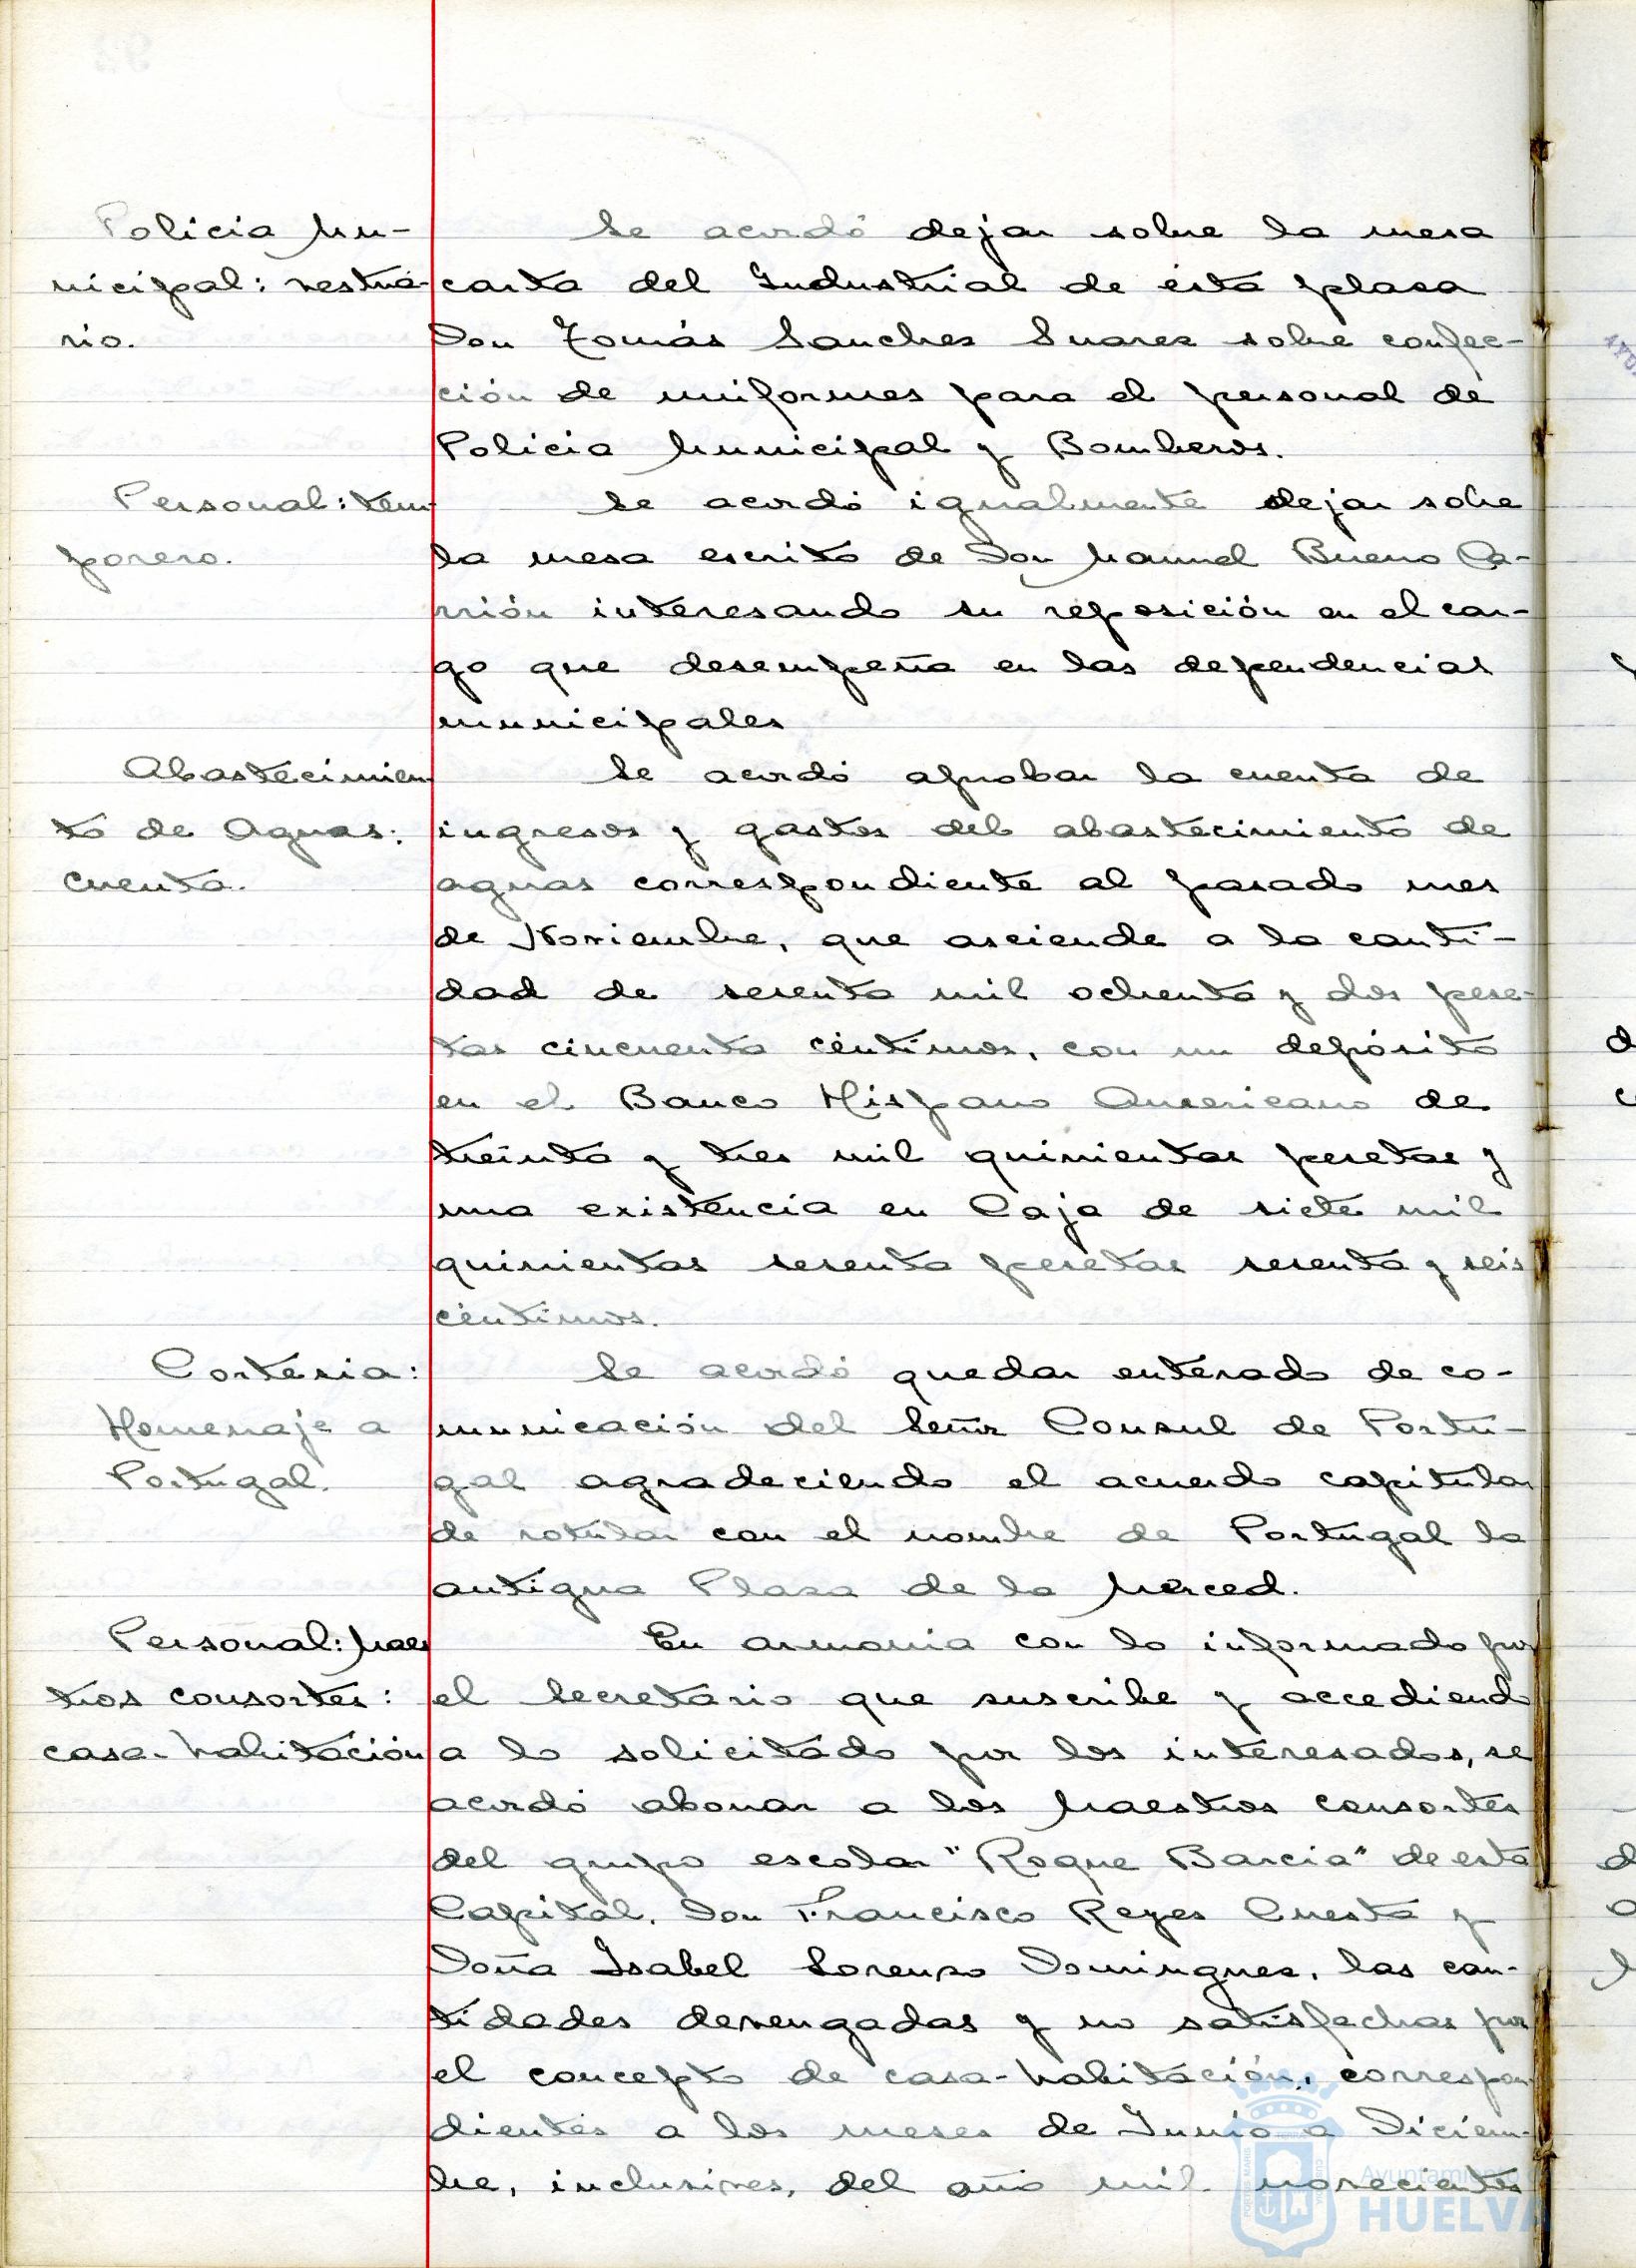 Policia Mu-
nicipal: vestua-
rio.
Se acordó dejar sobre la mesa
carta del Industrial de esta plaza
Don Tomás Sanchez Suarez sobre confec-
ción de uniformes para el personal de
Policia Municipal y Bomberos.
Personal: tem
porero.
Se acordó igualmente dejar sobre
la mesa escrito de Don Manuel Bueno Ca-
rrión interesando su reposición en el car-
go que desempeña en las dependencias
municipales
Abastecimien
to de Aguas:
cuenta.
Se acordó aprobar la cuenta de
ingresos y gastos del abastecimiento de
aguas correspondiente al pasado mes
de Noviembre, que asciende a la canti-
dad de sesenta mil ochenta y dos pese-
tas cincuenta céntimos, con un depósito
en el Banco Hispano Americano de
treinta y tres mil quinientas pesetas y
una existencia en Caja de siete mil
quinientas sesenta pesetas sesenta y seis
céntimos.
Cortesia:
Homenaje a
Portugal.
Se acordó quedar enterado de co-
municación del Señor Consul de Portu-
gal agradeciendo el acuerdo capitular
de rotular con el nombre de Portugal la
antigua Plaza de la Merced.
Personal: Maes
tros consortes:
casa-habitación
En armonia con lo informado por
el Secretario que suscribe y accediendo
a lo solicitado por los interesados, se
acordó abonar a los Maestros consortes
del grupo escolar "Roque Barcia" de esta
Capital, Don Francisco Reyes Cuesta y
Doña Isabel Lorenzo Dominguez, las can-
tidades devengadas y no satisfechas por
el concepto de casa-habitación, correspon-
dientes a los meses de Junio a Diciem-
bre, inclusives, del año mil novecientos
Ayuntamiento de
HUELVA